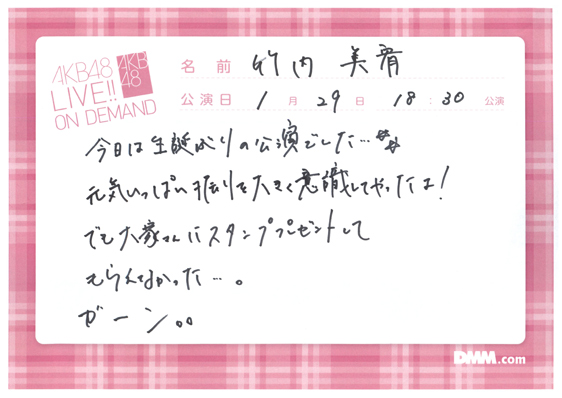 AKB48
LIVE!!
ON DEMAND
AKB
48
名前 竹内 美宥
公演日 1月29日 18:30公演
今日は生誕ばりの公演でした…
元気いっぱい振りを大きく意識してやったよ!
でも大家さんにスタンププレゼントして
もらえなかった…。
ガーン。。
DMM.com